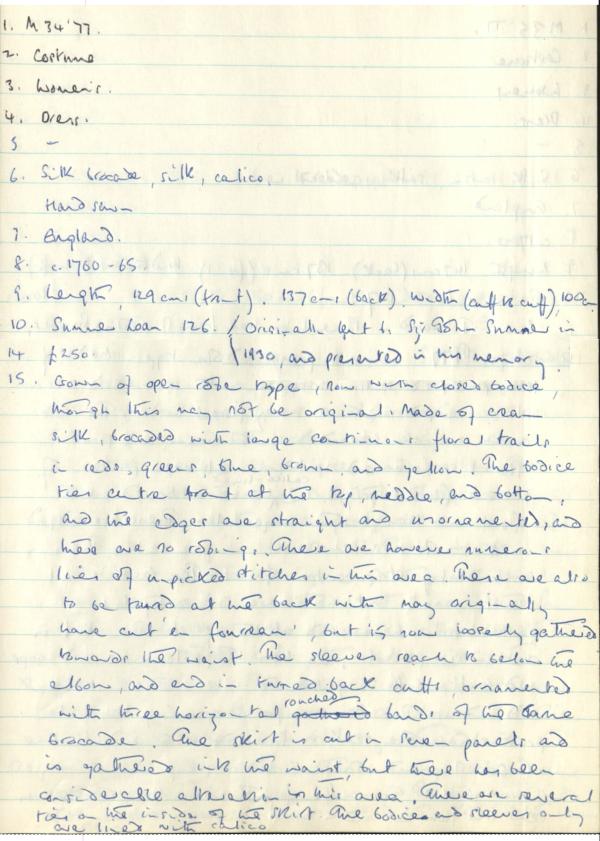 1. M 34'77.
2. Costume
3. Women's.
4. Dress.
5 –
6. Silk brocade, silk, calico.
Hand sewn
7. England.
8. c. 1760-65
9. Length, 129 cms (front). 137 cms (back). Width (cuff to cuff), 100cm
10. Sumner Loan 126. / Originally lent by Sir John Sumner in
14 £250 \ 1930, and presented in his memory.
15. Gown of open robe type, now with closed bodice,
though this may not be original. Made of cream
silk, brocaded with large continuous floral trails
in reds, greens, blue, brown and yellow. The bodice
ties centre front at the top, middle, and bottom,
and the edges are straight and unornamented, and
there are no robings. There are however numerous
lines of unpicked stitches in this area. These are also
to be found at the back with may originally
have cut 'en fourreau', but is now loosely gathered
towards the waist. The sleeves reach to below the
elbow, and end in turned back cuffs, ornamented
with three horizontal gathered rouched bands of the same
brocade. The skirt is cut in seven panels and
is gathered into the waist, but there has been
considerable alteration in this area. There are several
ties on the inside of the skirt. The bodice and sleeves only
are lined with calico